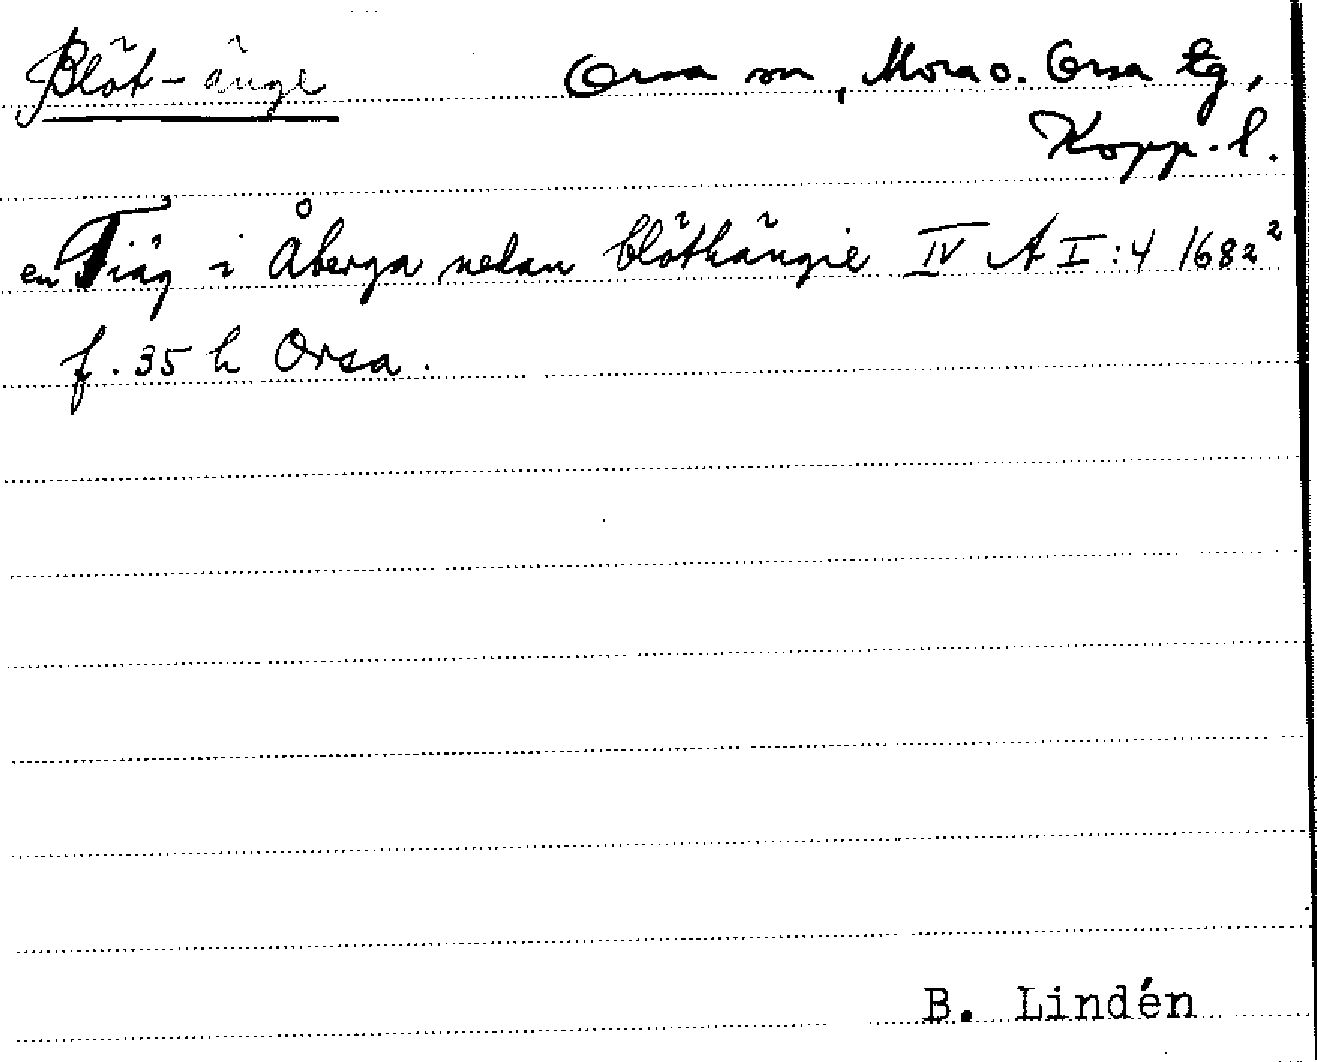 Blöt-änge Orsa sn, Mora o. Orsa tg,
Kopp. l.
en Tiäg i Åberga nedan blöthängie IV A I:4 1682²
f. 35 h Orsa.
B. Lindén